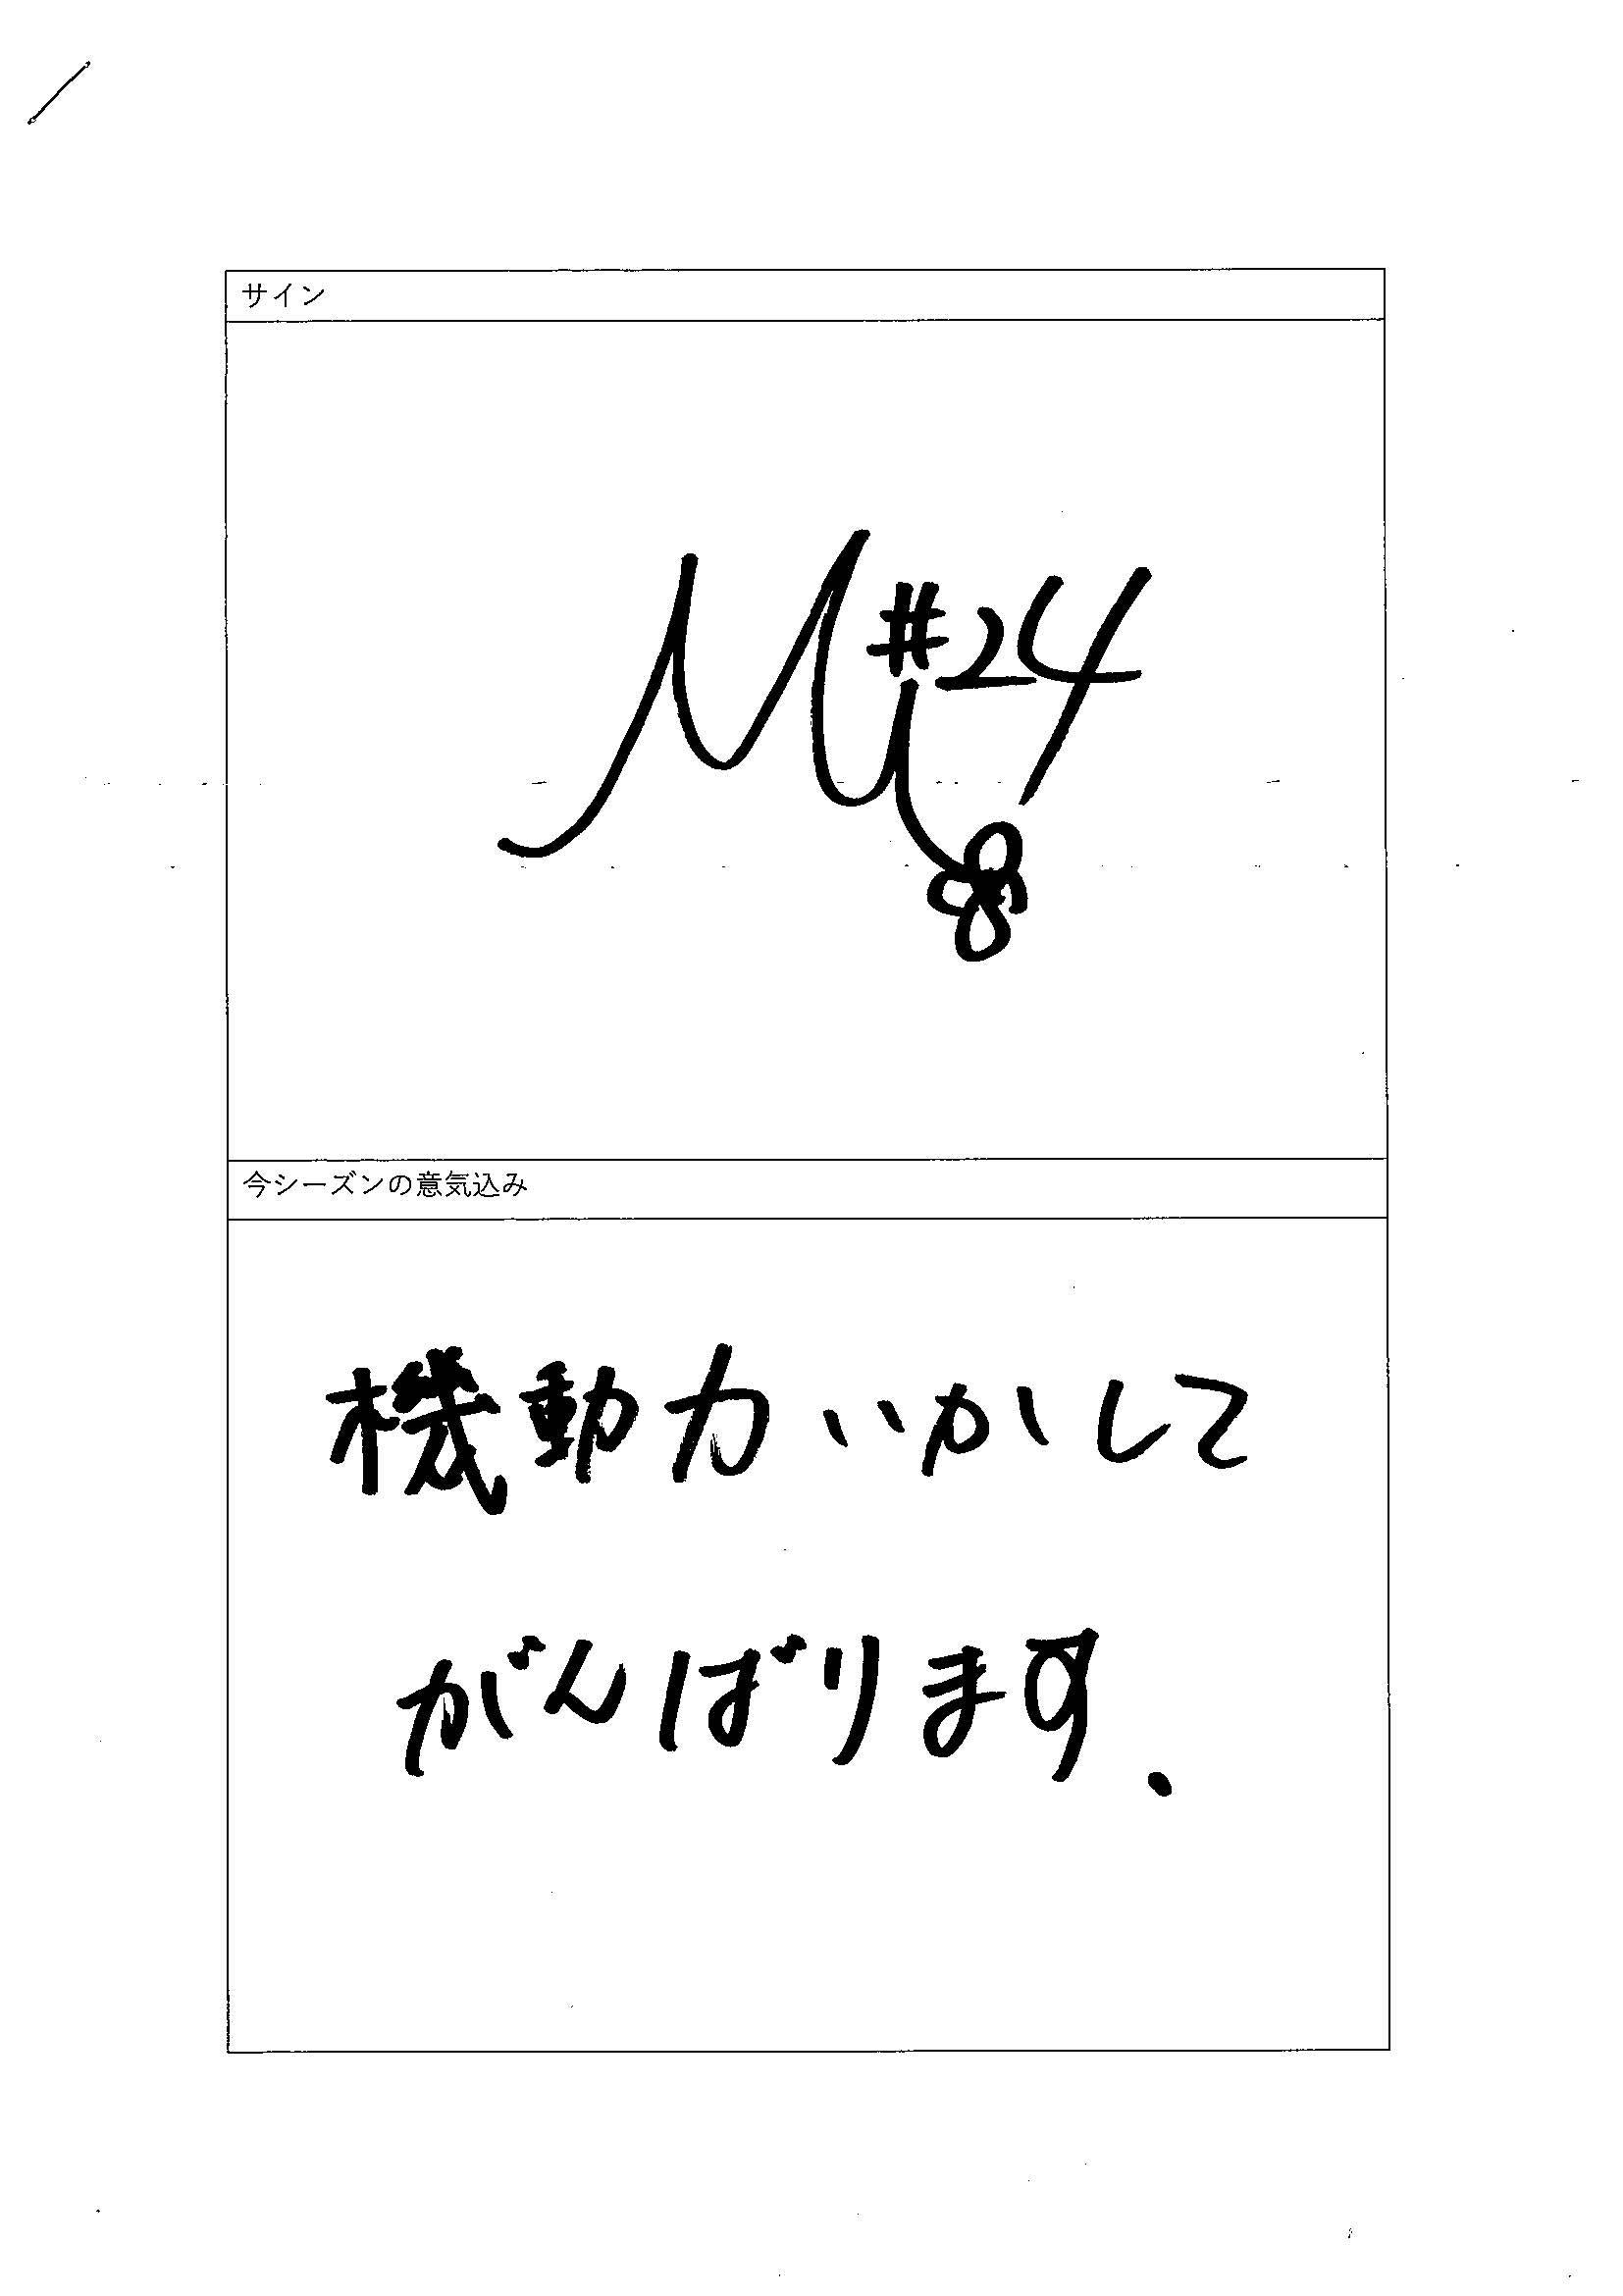 サイン
#24
今シーズンの意気込み
機動力いかして
がんばります、